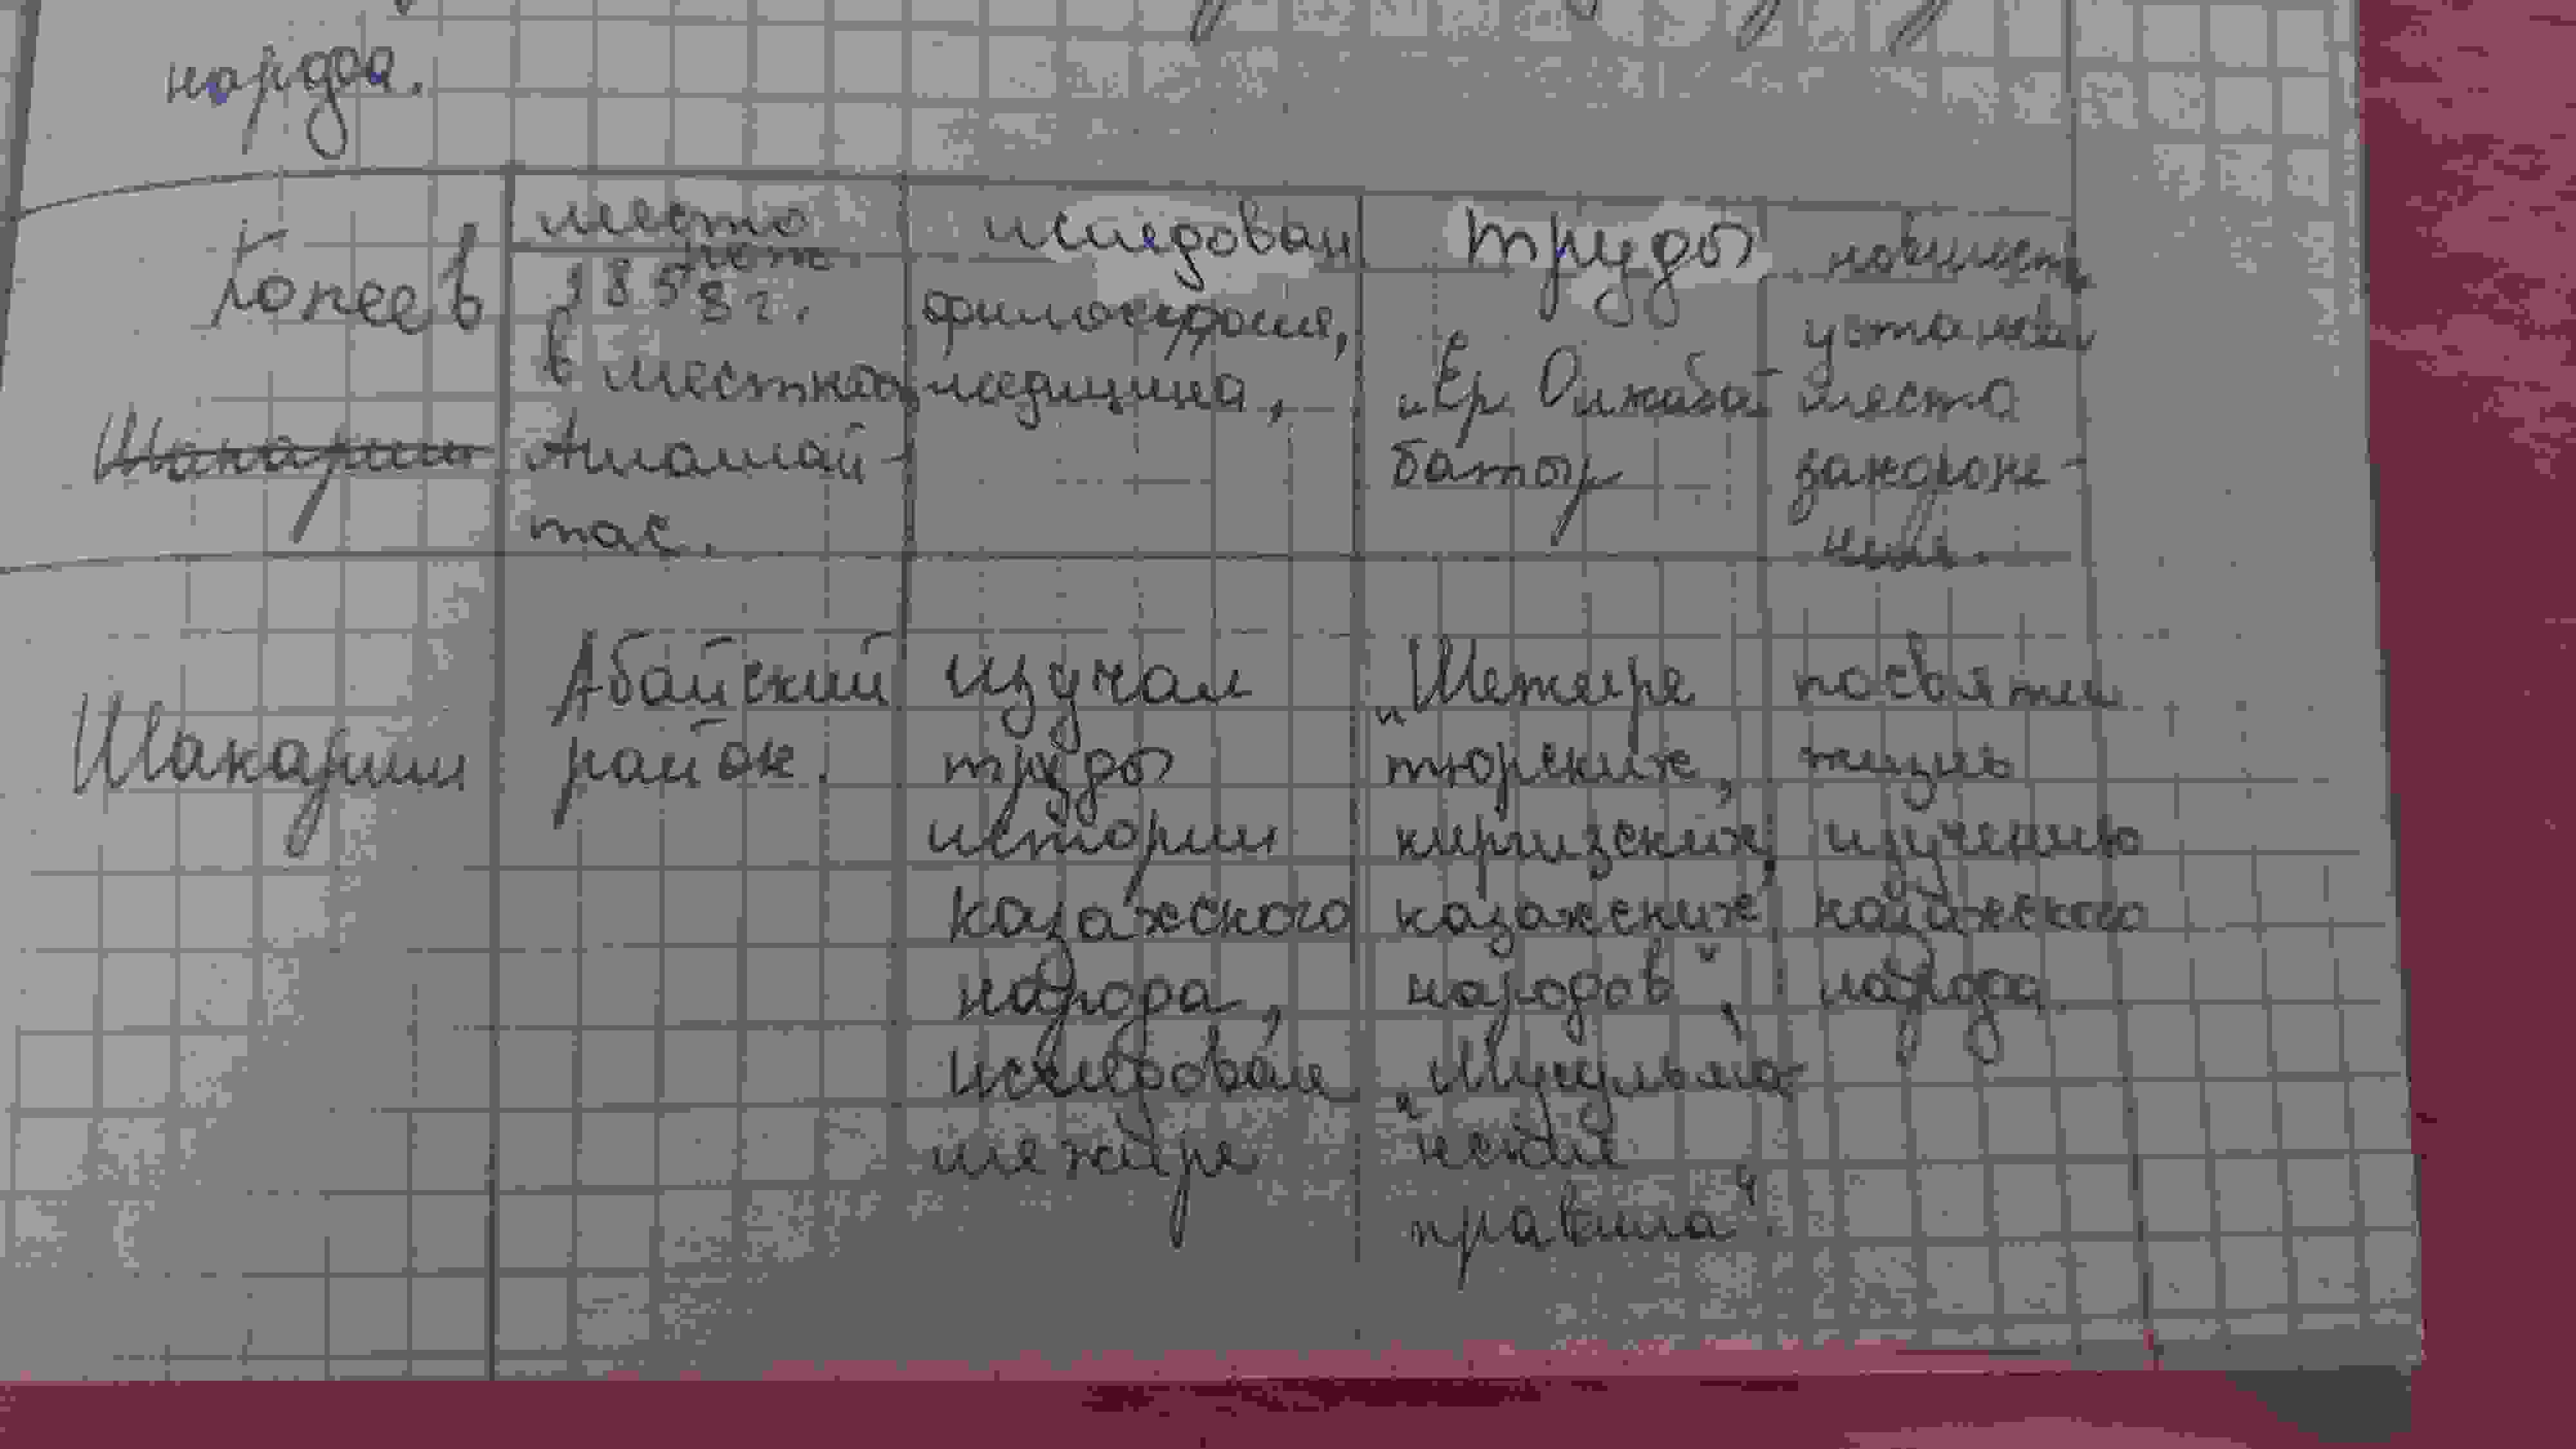 народа.
Копеев
Шакарим
место
1858г.
в местнос
Атшатай-
тас.
иследовал
философия,
медицина,
Труды
"Ер Олжабай
батор
установил
место
захороне-
ния.
Шакарим
Абайский
район.
изучал
труды
истории
казахского
народа,
иследовал
шежире
"Шежире
тюрских,
киргизских,
казахских
народов",
"Мусульма
нские
правила".
посвятил
жизнь
изучению
казахского
народа.